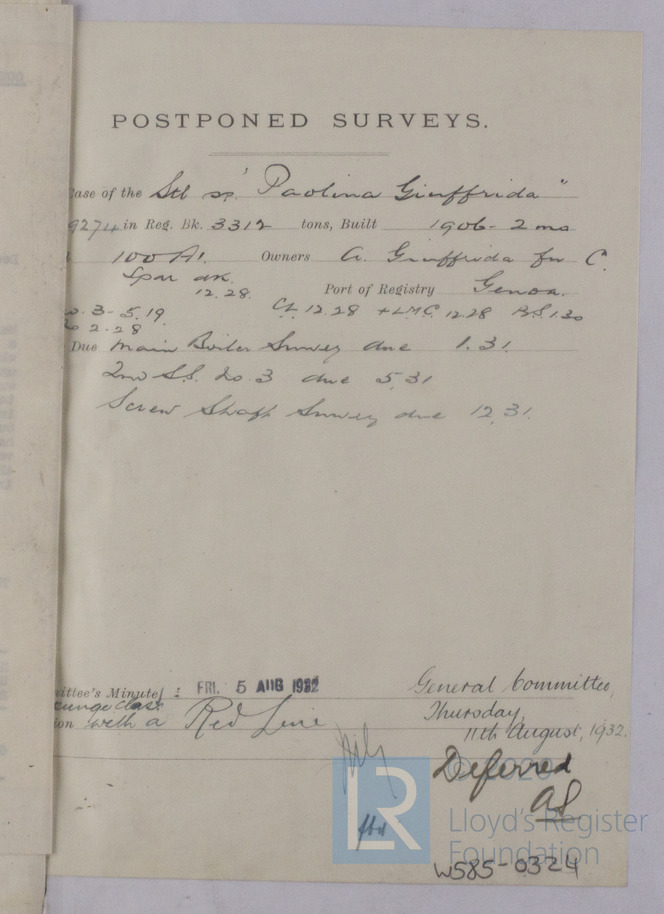 POSTPONED SURVEYS.
ase of the Stl ss. "Paolina Giuffrida"
9274 in Reg. Bk. 3312 tons, Built 1906 - 2 mo
100 A1. Owners A. Giuffrida fu C.
Spar dk.
12.28. Port of Registry Genoa.
o. 3 - 5.19. CL 12.28 +LMC 12.28 B.S 1.30
2.28
Due Main Boiler Survey due 1.31.
2nd S.S. No 3 due 5.31
Screw Shaft Survey due 12.31.
ittee's Minute : FRI. 5 AUG 1932 General Committee,
class Thursday,
ion with a Red Line 11th August, 1932.
Deferred
© 2020
LR
Lloyd's Register
Foundation
W585-0324